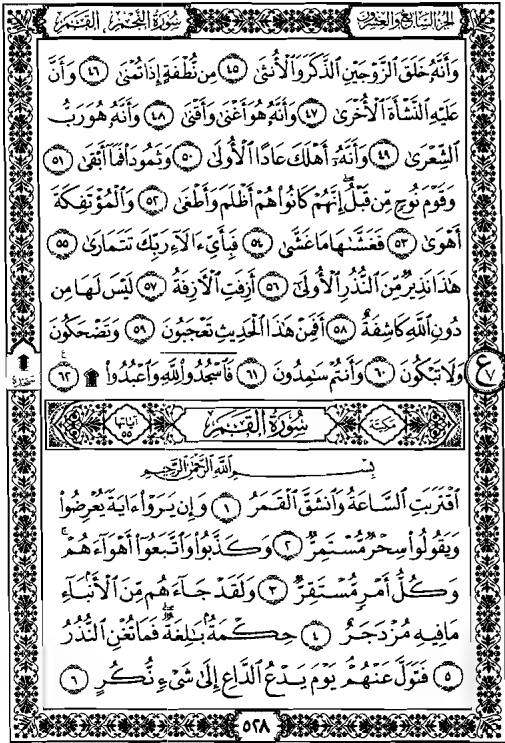 الجزء السابع والعشرون سورة النجم القمر
وَأَنَّهُ خَلَقَ ٱلزَّوْجَيْنِ ٱلذَّكَرَ وَٱلْأُنثَىٰ ٤٥ مِن نُّطْفَةٍ إِذَا تُمْنَىٰ ٤٦ وَأَنَّ
عَلَيْهِ ٱلنَّشْأَةَ ٱلْأُخْرَىٰ ٤٧ وَأَنَّهُ هُوَ أَغْنَىٰ وَأَقْنَىٰ ٤٨ وَأَنَّهُ هُوَ رَبُّ
ٱلشِّعْرَىٰ ٤٩ وَأَنَّهُ أَهْلَكَ عَادًا ٱلْأُولَىٰ ٥٠ وَثَمُودَا۟ فَمَا أَبْقَىٰ ٥١
وَقَوْمَ نُوحٍ مِّن قَبْلُ إِنَّهُمْ كَانُوا۟ هُمْ أَظْلَمَ وَأَطْغَىٰ ٥٢ وَٱلْمُؤْتَفِكَةَ
أَهْوَىٰ ٥٣ فَغَشَّىٰهَا مَا غَشَّىٰ ٥٤ فَبِأَيِّ ءَالَآءِ رَبِّكَ تَتَمَارَىٰ ٥٥
هَٰذَا نَذِيرٌ مِّنَ ٱلنُّذُرِ ٱلْأُولَىٰ ٥٦ أَزِفَتِ ٱلْآزِفَةُ ٥٧ لَيْسَ لَهَا مِن
دُونِ ٱللَّهِ كَاشِفَةٌ ٥٨ أَفَمِنْ هَٰذَا ٱلْحَدِيثِ تَعْجَبُونَ ٥٩ وَتَضْحَكُونَ
وَلَا تَبْكُونَ ٦٠ وَأَنتُمْ سَٰمِدُونَ ٦١ فَٱسْجُدُوا۟ لِلَّهِ وَٱعْبُدُوا۟ ۩ ٦٢
ع ٧
سجدة
مكية سورة القمر آياتها ٥٥
بِسْمِ ٱللَّهِ ٱلرَّحْمَٰنِ ٱلرَّحِيمِ
ٱقْتَرَبَتِ ٱلسَّاعَةُ وَٱنشَقَّ ٱلْقَمَرُ ١ وَإِن يَرَوْا۟ ءَايَةً يُعْرِضُوا۟
وَيَقُولُوا۟ سِحْرٌ مُّسْتَمِرٌّ ٢ وَكَذَّبُوا۟ وَٱتَّبَعُوٓا۟ أَهْوَآءَهُمْ ۚ
وَكُلُّ أَمْرٍ مُّسْتَقِرٌّ ٣ وَلَقَدْ جَآءَهُم مِّنَ ٱلْأَنۢبَآءِ
مَا فِيهِ مُزْدَجَرٌ ٤ حِكْمَةٌۢ بَٰلِغَةٌ ۖ فَمَا تُغْنِ ٱلنُّذُرُ
٥ فَتَوَلَّ عَنْهُمْ ۘ يَوْمَ يَدْعُ ٱلدَّاعِ إِلَىٰ شَىْءٍ نُّكُرٍ ٦
٥٢٨